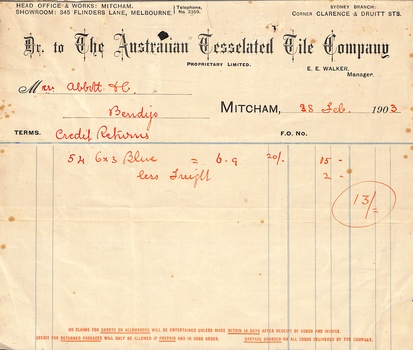 HEAD OFFICE & WORKS: MITCHAM.
SHOWROOM: 345 FLINDERS LANE, MELBOURNE
Telephone, No. 2359.
SYDNEY BRANCH:
CORNER CLARENCE & DRUITT STS.
Dr. to The Australian Tesselated Tile Company
PROPRIETARY LIMITED.
E. E. WALKER.
Manager.
Abbott & Co.
Bendigo
MITCHAM, 28 Feb. 1903
TERMS. Credit Returns F.O. No.
54 6x3 Blue = 6.9 20/. 15 -
less Freight 2 -
13/=
NO CLAIM FOR SHORTS OR ALLOWANCES WILL BE ENTERTAINED UNLESS MADE WITHIN 14 DAYS AFTER RECEIPT OF GOODS AND INVOICE.
CREDIT FOR RETURNED PACKAGES WILL ONLY BE ALLOWED IF PREPAID AND IN GOOD ORDER. CARTAGE CHARGED ON ALL GOODS DELIVERED BY THE COMPANY.